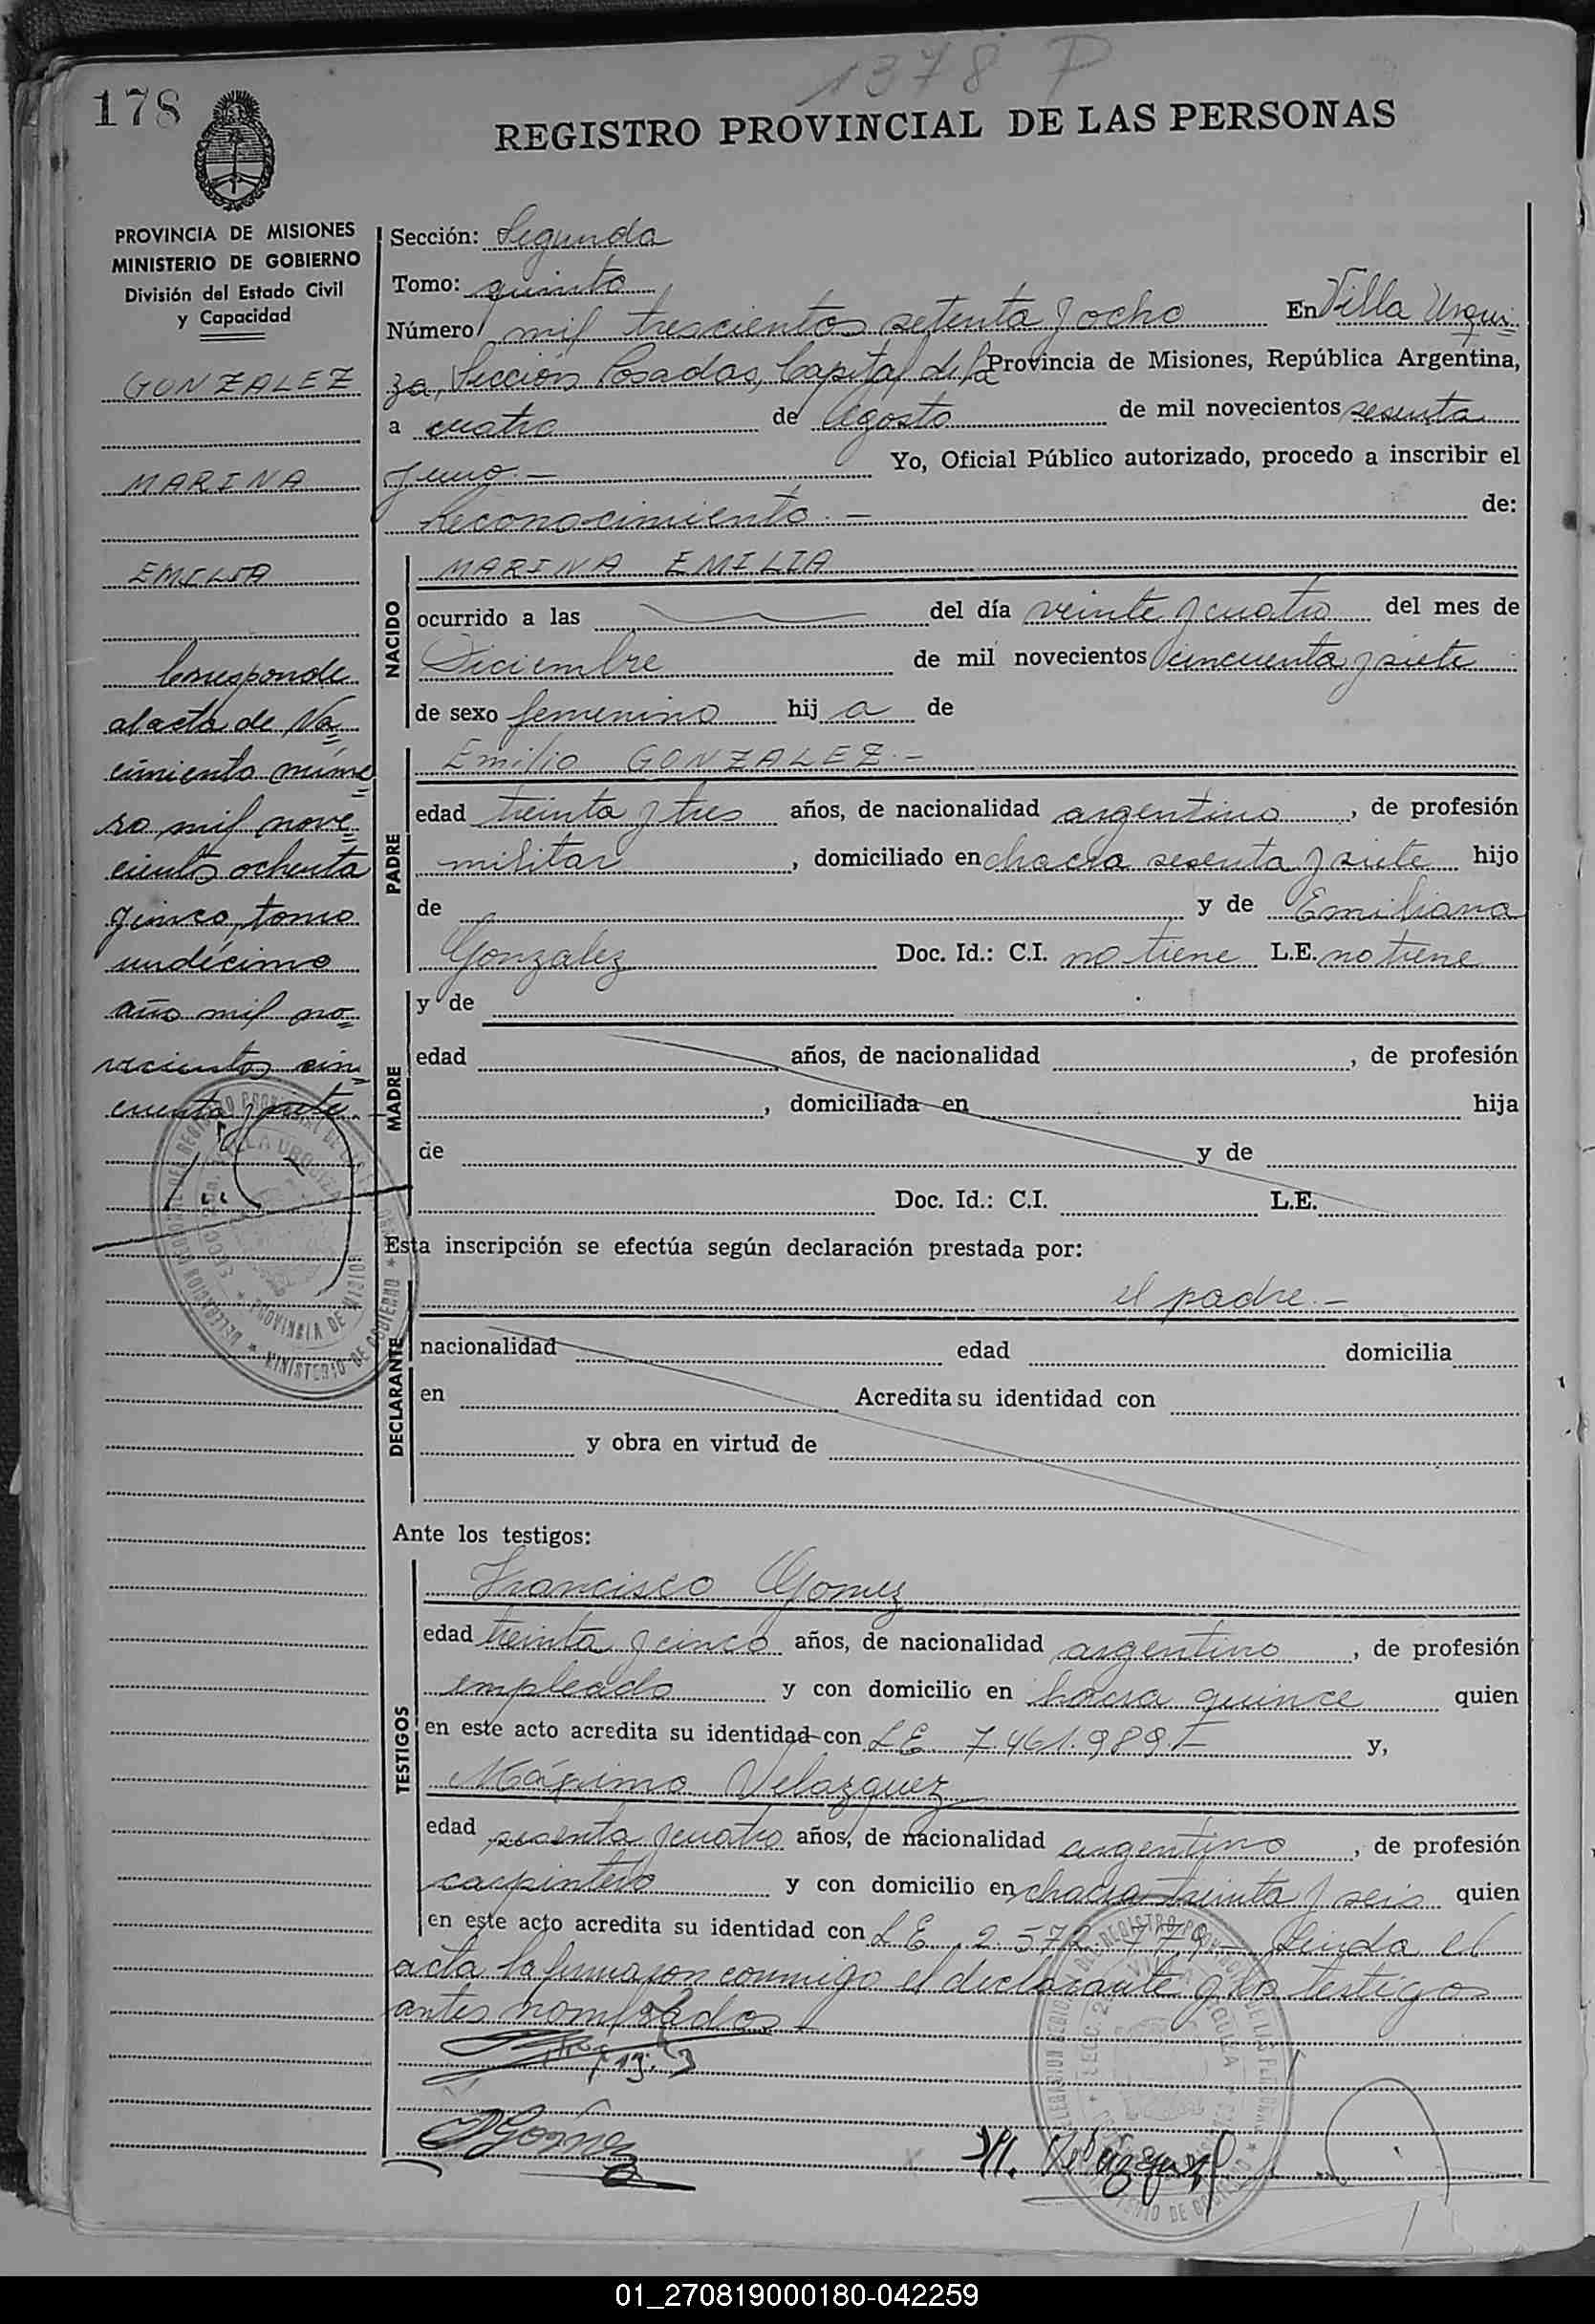 1378 P
178
REGISTRO PROVINCIAL DE LAS PERSONAS
PROVINCIA DE MISIONES
MINISTERIO DE GOBIERNO
División del Estado Civil
y Capacidad
GONZALEZ
MARINA
EMILIA
Corresponde
al acta de Na=
cimiento núme=
ro mil nove=
cientos ochenta
y cinco, tomo
undécimo
año mil no=
vecientos cin=
cuenta y siete.
Sección: Segunda
Tomo: quinto
Número mil trescientos setenta y ocho En Villa Urqui=
za, Sección Posadas, Capital de la Provincia de Misiones, República Argentina,
a cuatro de Agosto de mil novecientos sesenta
y uno.- Yo, Oficial Público autorizado, procedo a inscribir el
Reconocimiento.- de:
NACIDO
MARINA EMILIA
ocurrido a las del día veinte y cuatro del mes de
Diciembre de mil novecientos cincuenta y siete
de sexo femenino hij a de
PADRE
Emilio GONZALEZ.-
edad treinta y tres años, de nacionalidad argentino, de profesión
militar, domiciliado en chacra sesenta y siete hijo
de y de Emiliana
Gonzalez Doc. Id.: C.I. no tiene L.E. no tiene
MADRE
y de
edad años, de nacionalidad , de profesión
, domiciliada en hija
de y de
Doc. Id.: C.I. L.E.
Esta inscripción se efectúa según declaración prestada por:
DECLARANTE
el padre.-
nacionalidad edad domicilia
en Acredita su identidad con
y obra en virtud de
Ante los testigos:
TESTIGOS
Francisco Gomez
edad treinta y cinco años, de nacionalidad argentino, de profesión
empleado y con domicilio en chacra quince quien
en este acto acredita su identidad con L E 7.461.989.- y,
Máximo Velazquez
edad sesenta y cuatro años, de nacionalidad argentino, de profesión
carpintero y con domicilio en chacra treinta y seis quien
en este acto acredita su identidad con L E 2.572.779.- Leida el
acta la firmaron conmigo el declarante y los testigos
antes nombrados.-
Gómez
M. Velazquez
01_270819000180-042259